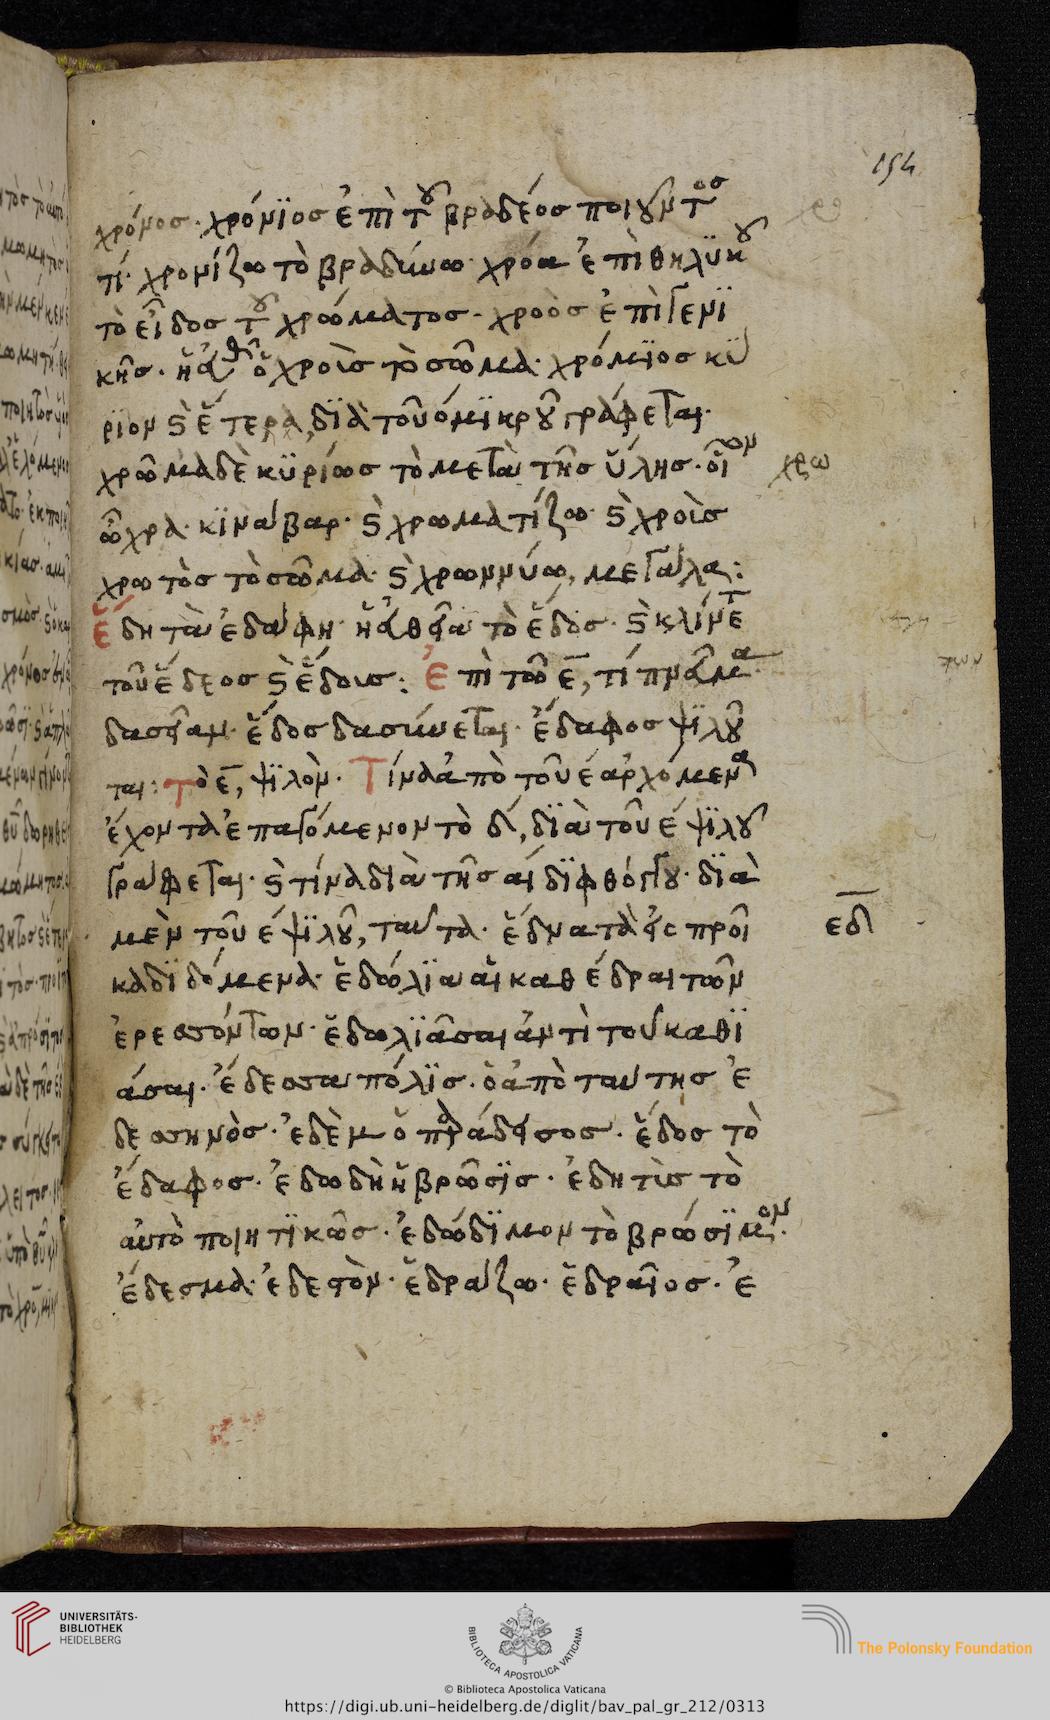 154
χρόνος · χρόνϊος ἐπὶ τοῦ βραδέος ποιοῦντος
τί · χρονίζω τὸ βραδύνω · χρόα ἐπὶ θηλϋκοῦ
τὸ εἶδος τοῦ χρώματος · χροὸς ἐπὶ γενϊ
κῆς · ὁ χροῒς τὸ σῶμα · χρόμϊος κύ
ρϊον καὶ ἕτερα, δϊὰ τοῦ ὁ μϊκροῦ γράφεται ·
χρῶμα δὲ κϋρίως τὸ μετὰ τῆς ὕλης · οἷον
χρω
ὤχρα · κϊνάβαρ · καὶ χρωματίζω · καὶ χροῒς
χρωτὸς τὸ σῶμα · καὶ χρωννύω, μεγάλα :
ἕδη τὰ ἐδάφη · τὸ ἕδος · καὶ κλίνετ
τοῦ ἕδεος καὶ ἕδοις : Ἐπὶ τῶ ε, τί πνᾶμα ·
δασεῖαν · ἕδος δασύνεται · ἔδαφος ψϊλοῦ
ται : τὸ ε, ψϊλὸν · Τίνα ἀπὸ τοῦ ἐ ἀρχόμενα
ἔχοντα ἐπαγόμενον τὸ δ, δϊὰ τοῦ ἐ ψϊλοῦ
γράφεται · καὶ τίνα διὰ τῆς αἰ δϊφθόγγου · δϊὰ
μὲν τοῦ ἐ ψϊλοῦ, ταῦτα · ἕδνα τὰ εἰς προῖ
εδ
κα δϊδόμενα · ἑδώλϊα αἱ καθέδραι τῶν
ἐρεσσόντων · ἑδωλϊᾶσαι ἀντὶ τοῦ καθϊ
άσαι · Ἔδεσσα πόλϊς · ὁ ἀπὸ ταύτης Ἐ
δεσσηνὸς · ἐδὲμ ὁ παράδεισος · ἕδος τὸ
ἔδαφος · ἐδωδὴ ἡ βρῶσϊς · ἐδητὺς τὸ
αὐτὸ ποιητϊκῶς · ἐδώδϊμον τὸ βρώσϊμον ·
ἔδεσμα · ἐδεστὸν · ἑδράζω · ἑδραῖος · ἐ
UNIVERSITÄTS-
BIBLIOTHEK
HEIDELBERG
BIBLIOTECA APOSTOLICA VATICANA
The Polonsky Foundation
© Biblioteca Apostolica Vaticana
https://digi.ub.uni-heidelberg.de/diglit/bav_pal_gr_212/0313